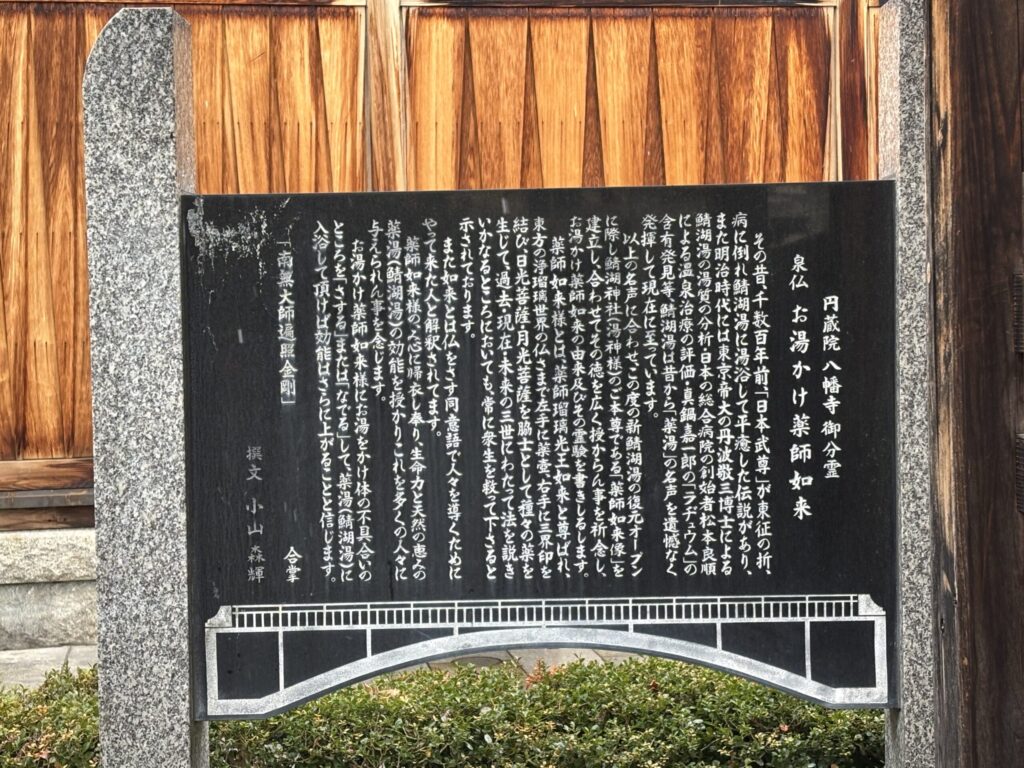 円蔵院 八幡寺 御分霊
泉仏 お湯かけ薬師如来
その昔、千数百年前「日本武尊」が東征の折、
病に倒れ鯖湖湯に湯浴して平癒した伝説があり、
また明治時代には東京帝大の丹波敬三博士による
鯖湖湯の湯質の分析・日本の総合病院の創始者松本良順
による温泉治療の評価・真鍋嘉一郎の「ラヂュウム」の
含有発見等、鯖湖湯は昔から「薬湯」の名声を遺憾なく
発揮して現在に至っています。
以上の名声に合わせ、この度の新鯖湖湯の復元オープン
に際し、鯖湖神社(湯神様)のご本尊である「薬師如来像」を
建立し、合わせてその徳を広く授からん事を祈念し、
お湯かけ薬師如来の由来及びその霊験を書きしるします。
薬師如来様とは、薬師瑠璃光王如来と尊ばれ、
東方の浄瑠璃世界の仏さまで左手に薬壷・右手に三界印を
結び、日光菩薩・月光菩薩を脇士として種々の薬を
生じて、過去・現在・未来の三世にわたって法を説き
いかなるところにおいても、常に衆生を救って下さると
示されております。
また如来とは仏をさす同意語で人々を導くために
やって来た人と解釈されてます。
薬師如来様の心に帰衣し奉り、生命力と天然の恵みの
薬湯(鯖湖湯)の効能を授かりこれを多くの人々に
与えられん事を念じます。
お湯かけ薬師如来様にお湯をかけ体の不具合いの
ところを「さする」または「なでる」して、薬湯(鯖湖湯)に
入浴して頂けば効能はさらに上がることと信じます。
合掌
「南無大師遍照金剛」
撰文 小山森輝